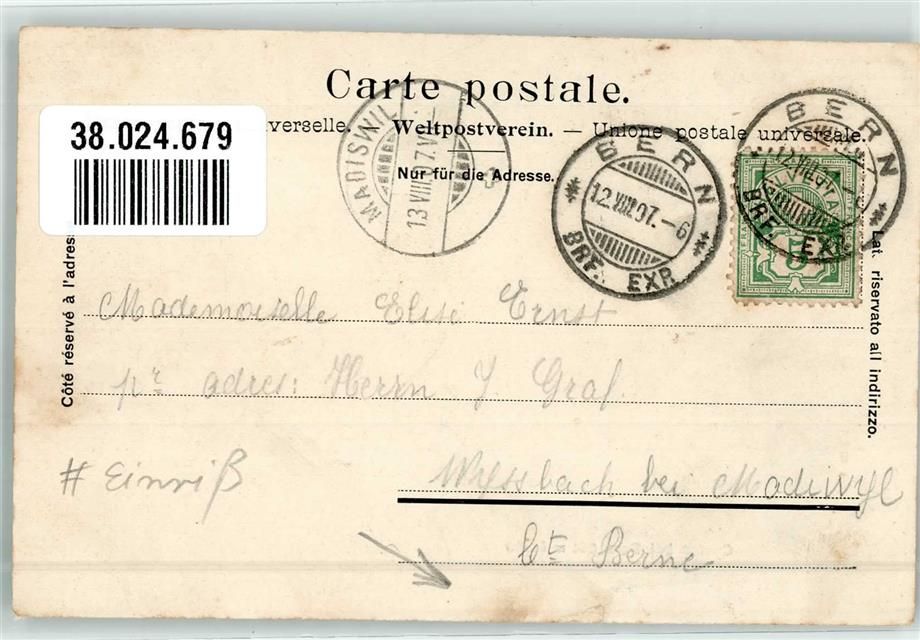 Carte postale.
38.024.679
verselle. Weltpostverein. — Unione postale universale.
Nur für die Adresse.
MADISWIL
13.VIII.07.V
BERN
12.VIII.07.-6
BRF. EXP.
BERN
BRF. EXP.
5
Côté réservé à l'adres
Lat. riservato all indirizzo.
Mademoiselle Elise Ernst
pr adres: Herrn J. Graf
# Einriß
Wyssbach bei Madiwyl
Ct Berne